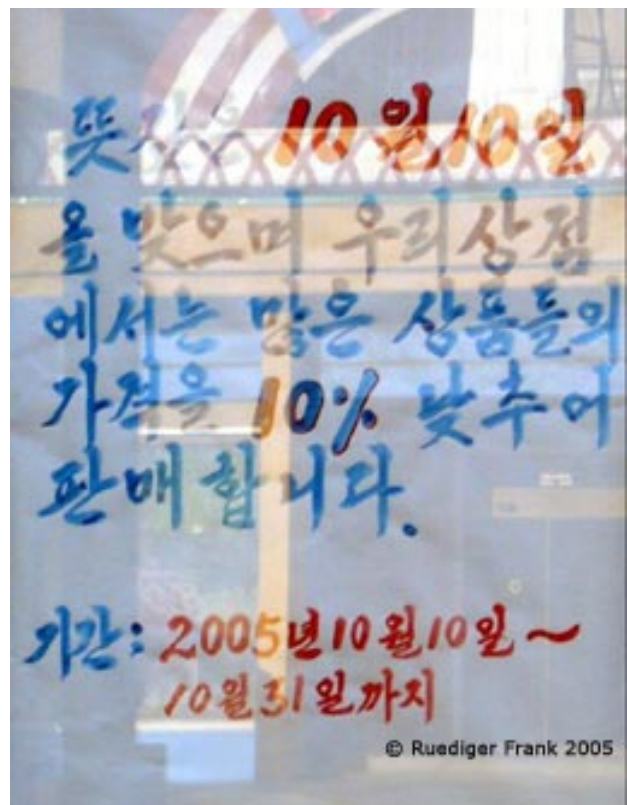 뜻깊은 10월10일
을 맞으며 우리상점
에서는 많은 상품들의
가격을 10% 낮추어
판매합니다.
기간: 2005년10월10일~
10월31일까지
© Ruediger Frank 2005